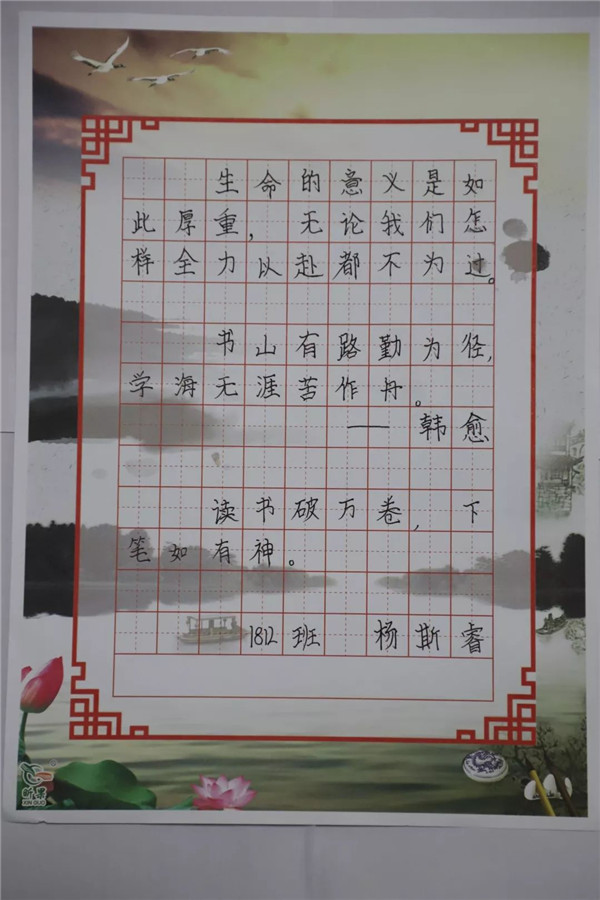 生命的意义是如
此厚重，无论我们怎
样全力以赴都不为过。
书山有路勤为径，
学海无涯苦作舟。
——韩愈
读书破万卷，下
笔如有神。
1812班 杨斯睿
昕果
XIN GUO